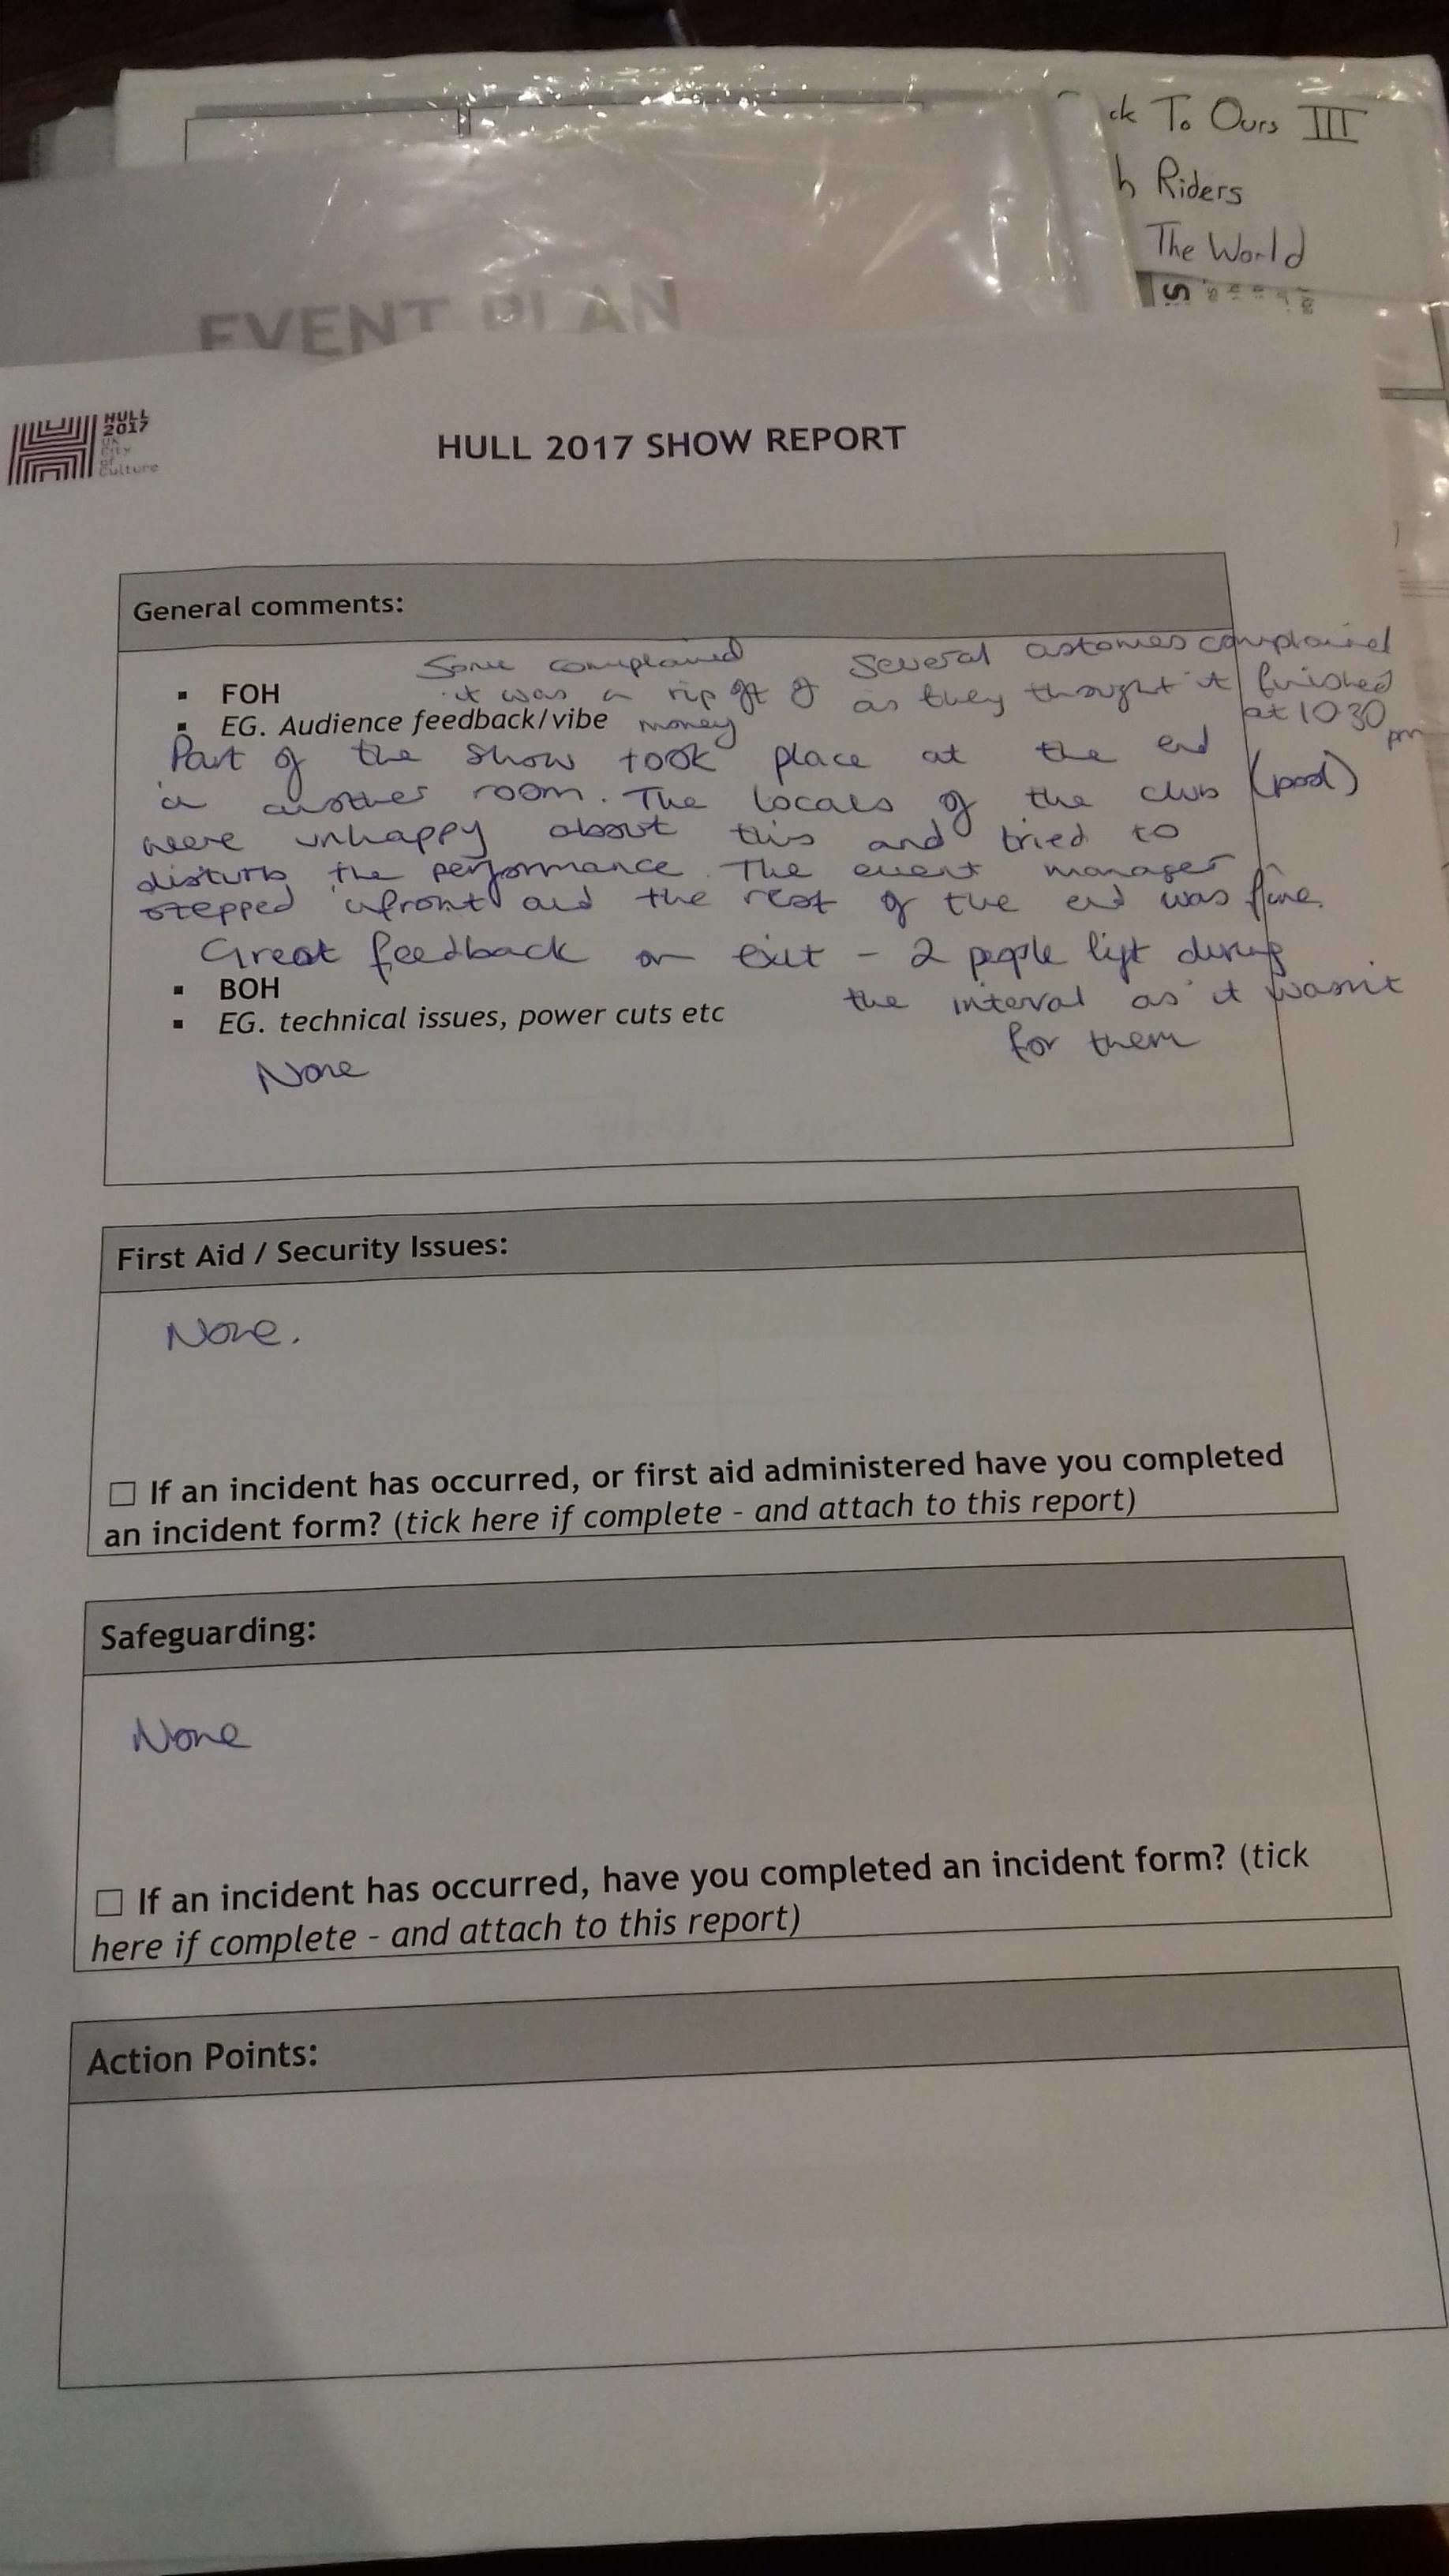 ck To Ours III
h Riders
The World
S
EVENT PLAN
HULL
2017
UK
City
of
Culture
HULL 2017 SHOW REPORT
General comments:
Some complained
it was a rip off of
money
Several customers complained
as they thought it finished
at 1030
pm
▪ FOH
▪ EG. Audience feedback/vibe
Part of the show took place at the end
in another room. The locals of the club (pool)
were unhappy about this and tried to
disturb the performance. The event manager
stepped infront and the rest of the end was fine.
Great feedback on exit - 2 people left during
the interval as it wasn't
for them
▪ BOH
▪ EG. technical issues, power cuts etc
None
First Aid / Security Issues:
None.
☐ If an incident has occurred, or first aid administered have you completed
an incident form? (tick here if complete - and attach to this report)
Safeguarding:
None
☐ If an incident has occurred, have you completed an incident form? (tick
here if complete - and attach to this report)
Action Points: